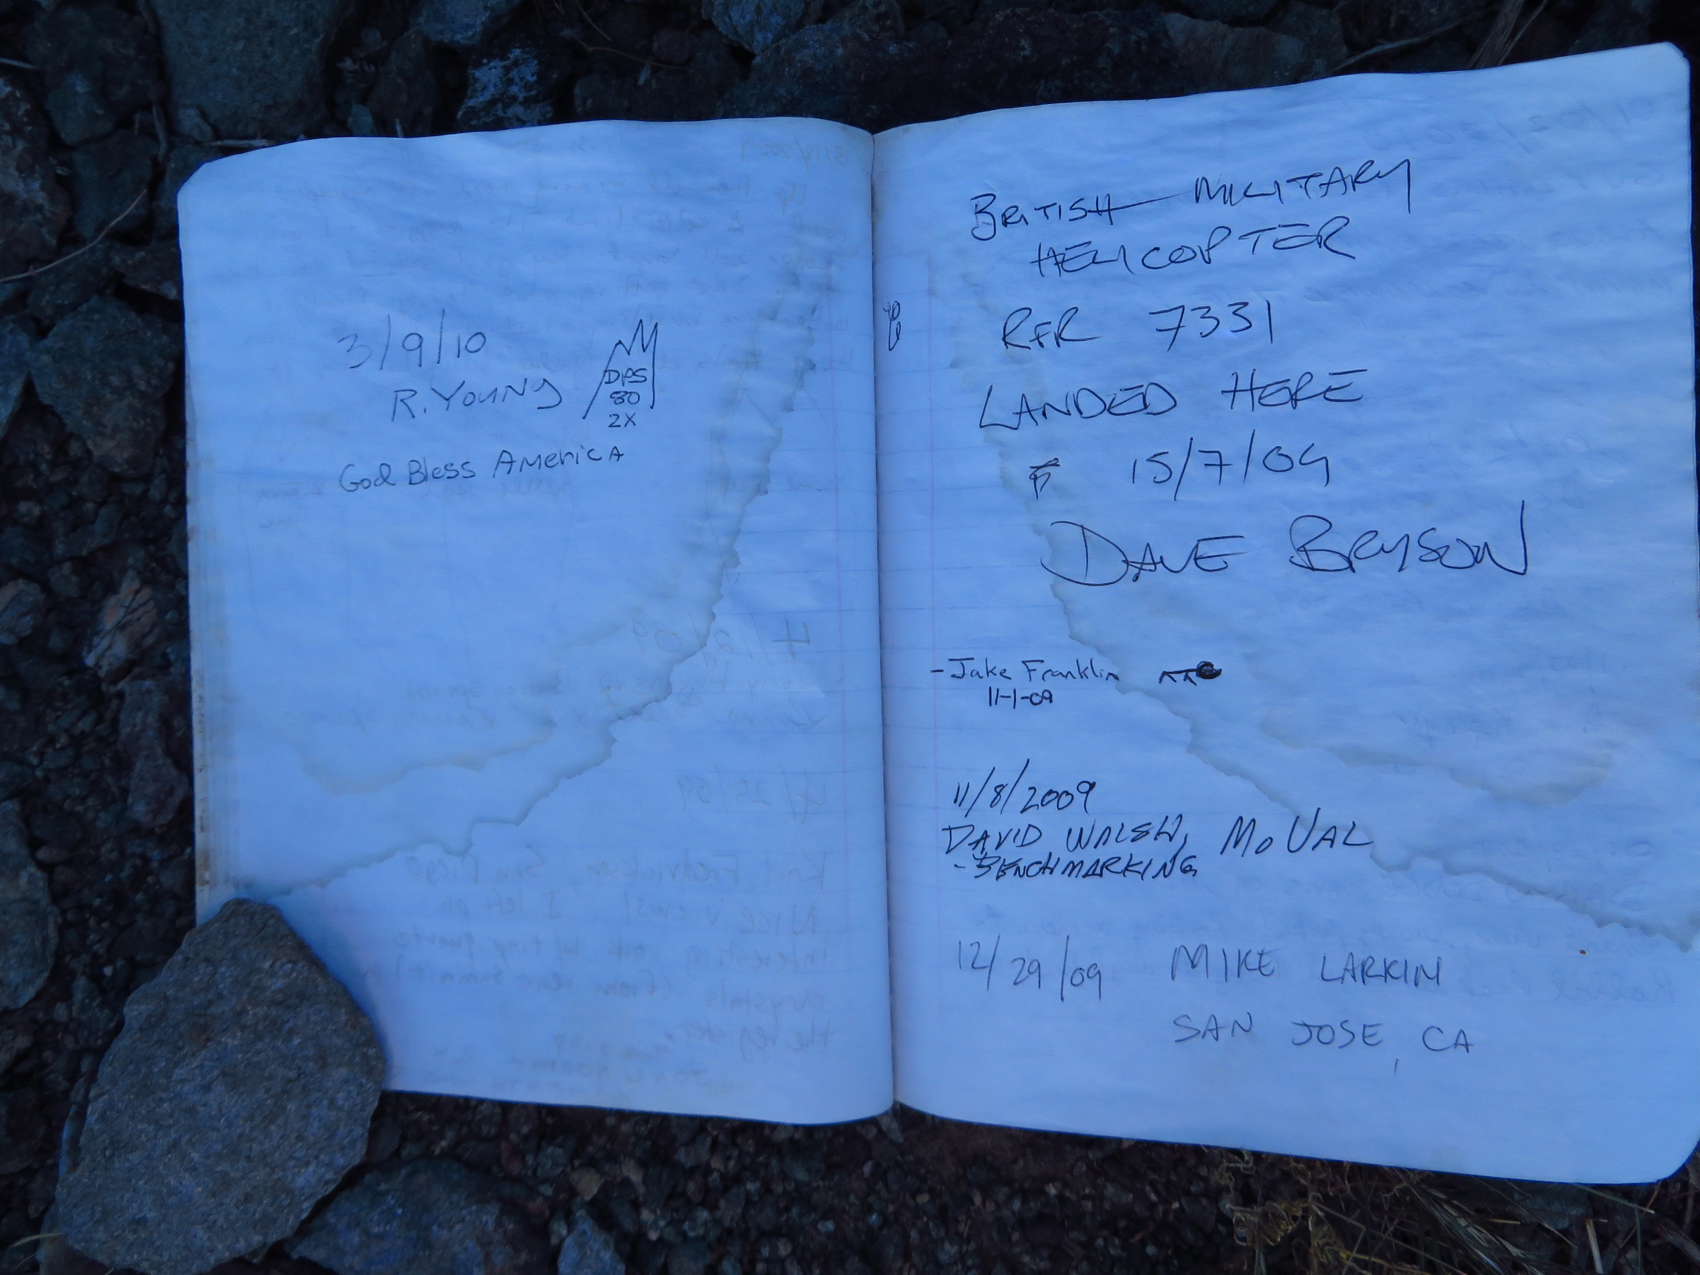 3/9/10
R. YOUNG
DPS
80
2X
God Bless America
BRITISH MILITARY
HELICOPTER
RFR 7331
LANDED HERE
15/7/09
DAVE BRYSON
- Jake Franklin
11-1-09
11/8/2009
DAVID WALSH, MO VAL
- BENCHMARKING
12/29/09 MIKE LARKIN
SAN JOSE, CA